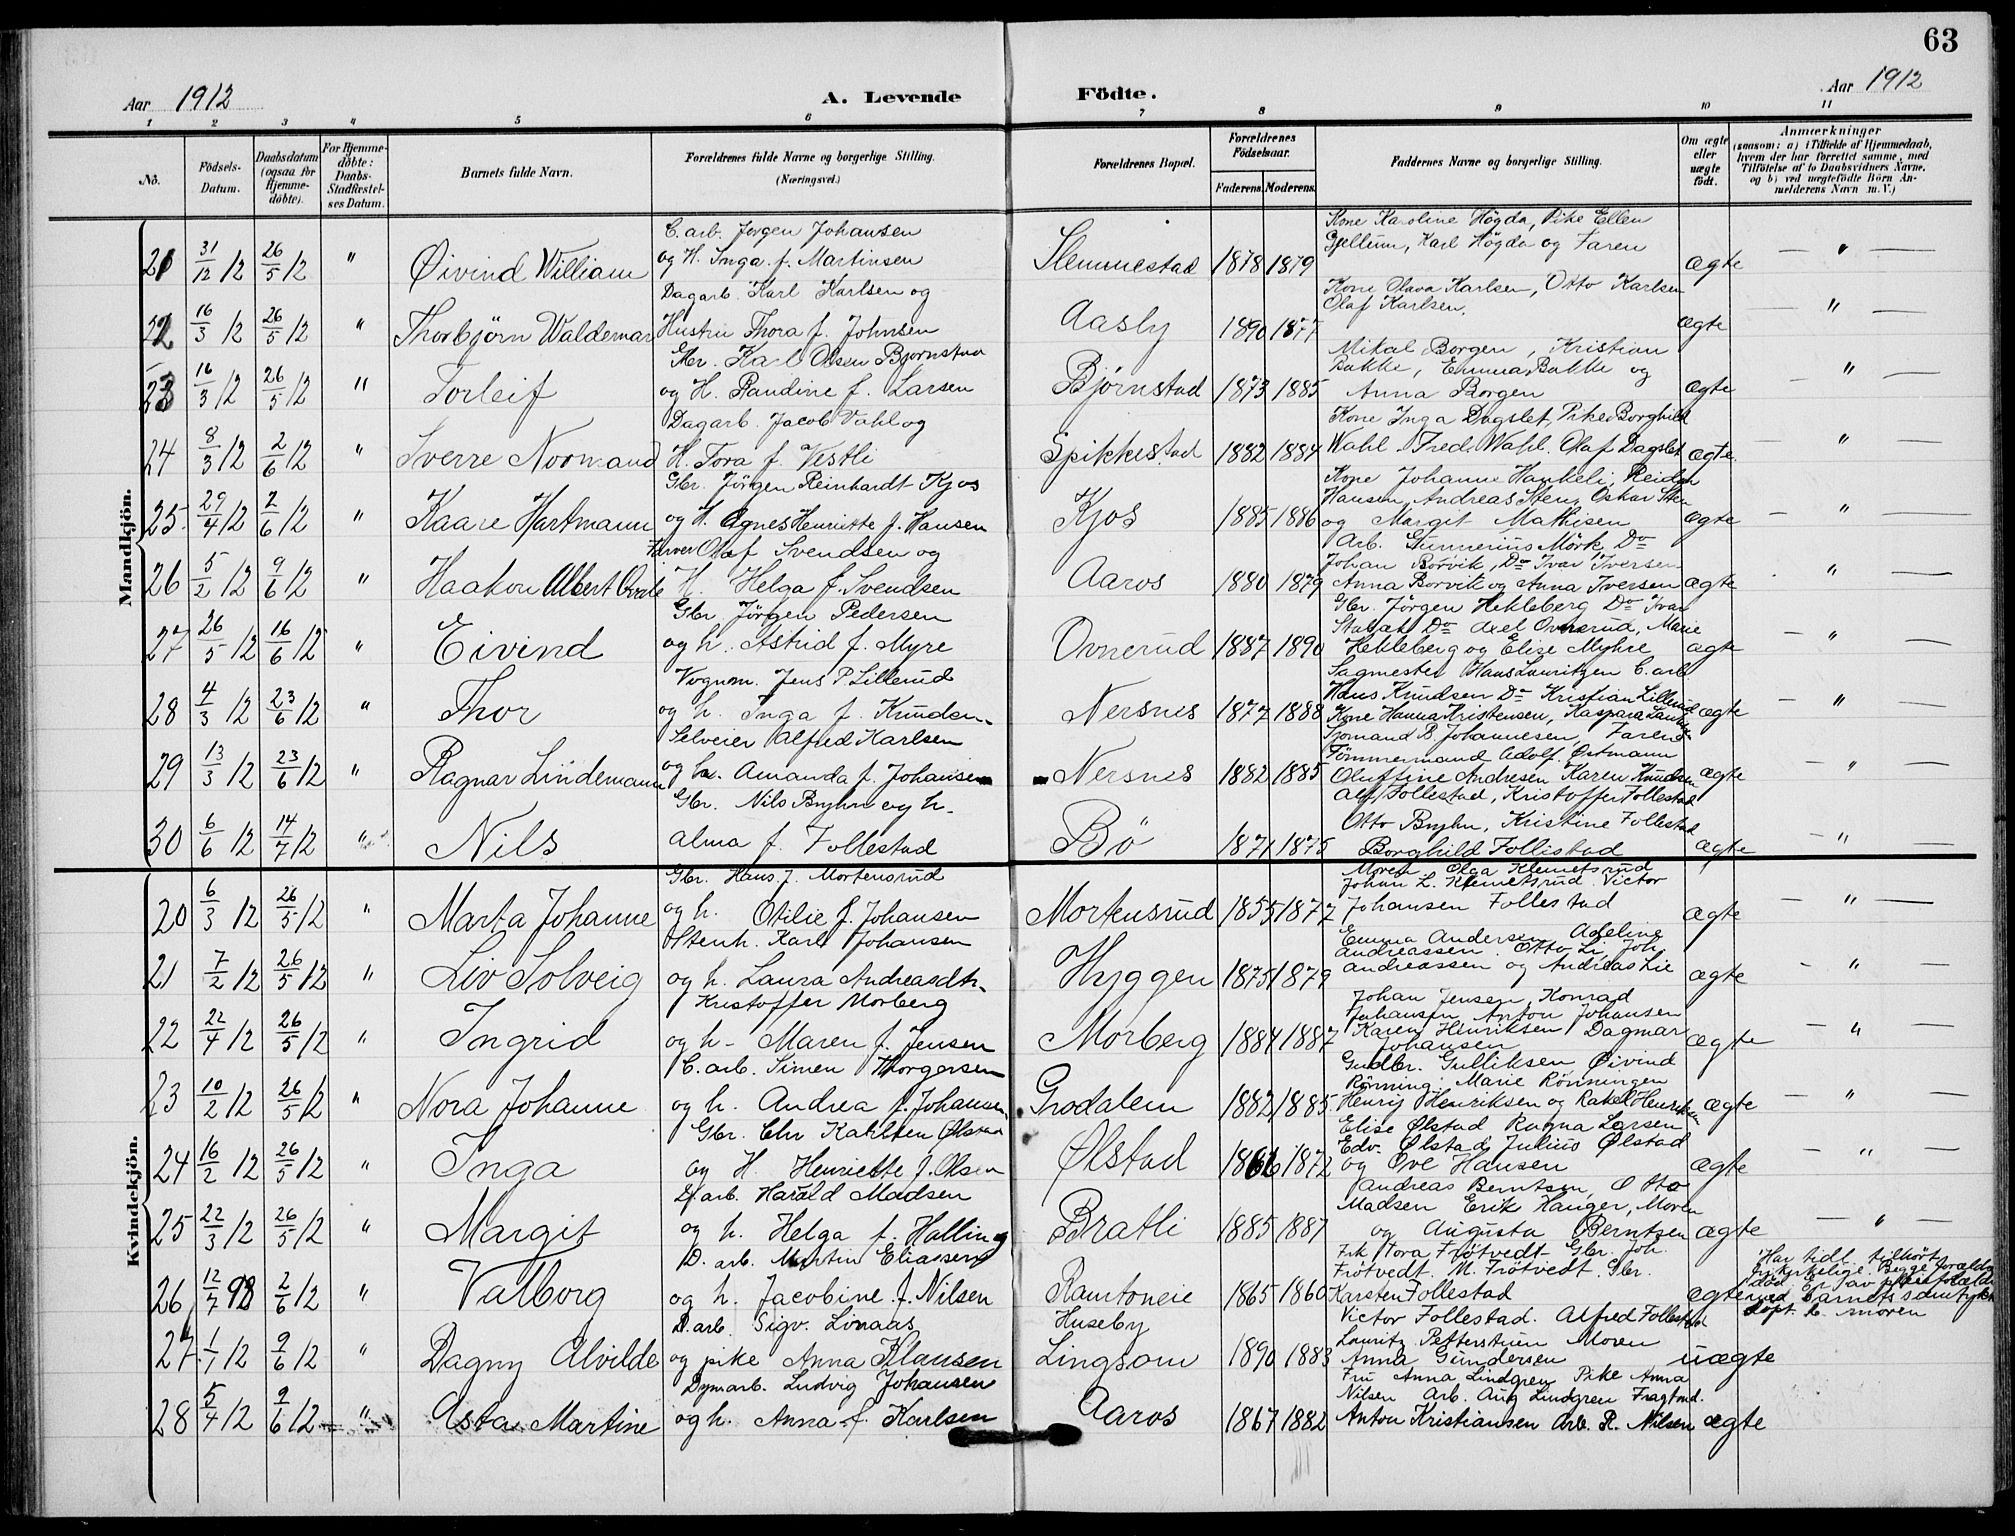 63
Aar 1912
A. Levende Födte.
Aar 1912
1 2 3 4 5 6 7 8 9 10 11
No.
Födsels-Datum.
Daabsdatum (ogsaa for Hjemme-döbte).
For Hjemme-döbte: Daabs-Stadfæstel-ses Datum.
Barnets fulde Navn.
Forældrenes fulde Navne og borgerlige Stilling.
(Næringsvei.)
Forældrenes Bopæl.
Forældrenes Födselsaar.
Faderens. Moderens.
Faddernes Navne og borgerlige Stilling.
Om ægte eller uægte födt.
Anmærkninger
(saasom: a) i Tilfælde af Hjemmedaab,
hvem der har forrettet samme, med
Tilföielse af to Daabsvidners Navne,
og b) ved uægtefödte Börn An-
melderens Navn m. V.)
Mandkjön.
C. arb. Jørgen Johansen
Kone Karoline Högda, Pike Ellen
21 31/12 12 26/5 12 " Öivind William og H. Inga f. Martinsen Slemmestad 1878 1879 Gjellum, Karl Högda og Faren ægte "
Dagarb. Karl Karlsen og
Kone Olava Karlsen, Otto Karlsen
22 16/3 12 26/5 12 " Thorbjörn Waldemar Hustru Thora f. Johnsen Aasly 1890 1877 Olaf Karlsen. ægte "
Gbr. Karl Olsen Bjørnstad
Mikal Borgen, Kristian
Bakke, Emma Bakke og
23 16/3 12 26/5 12 " Torleif og H. Randine f. Larsen Bjørnstad 1873 1885 Anna Borgen ægte "
Dagarb. Jacob Vahl og
Kone Inga Dagslet, Pike Borghild
24 8/3 12 2/6 12 " Sverre Normand H. Tora f. Vestli Spikkestad 1882 1884 Wahl. Fred. Wahl. Olaf Dagslet ægte "
Gbr. Jörgen Reinhardt Kjos
Kone Johanne Hankeli, Reidar
Hansen, Andreas Sten, Oskar Sten
25. 29/4 12 2/6 12 " Kaare Hartmann og H. Agnes Henriette f. Hansen Kjos 1885 1886 og Margit Mathisen ægte "
Olaf Svendsen og
Arb. Gunnerius Mörk, Do
Johan Borvik, Do Ivar Iversen
26 5/2 12 9/6 12 " Haakon Albert H. Helga f. Svendsen Aaros 1880 1879 Anna Borvik og Anna Iversen ægte "
Gbr. Jörgen Pedersen
Gbr. Jörgen Hekleberg Do Ivar
Do Axel Ovnerud, Marie
27 26/5 12 16/6 12 " Eivind og h. Astrid f. Myre Ovnerud 1887 1890 Hekleberg og Elise Myhre ægte "
Vognm. Jens P. Lillerud
Sagmester Hans Lauritzen C. arb.
Hans Knudsen Do Kristian Lillerud
28 4/3 12 23/6 12 " Thor og h. Inga f. Knudsen Nersnes 1877 1888 Kone Hanna Kristensen, Kaspara ægte "
Selveier Alfred Karlsen
B. Johannesen, Faren
Tömmermand Adolf Östmann
29 13/3 12 23/6 12 " Ragnar Lindemann og h. Amanda f. Johansen Nersnes 1882 1885 Oluffine Andresen Karen Knudsen ægte "
Gbr. Nils Bryhn og h.
Alf Follestad, Kristoffer Follestad
Otto Bryhn, Kristine Follestad
30 6/6 12 14/7 12 " Nils Alma f. Follestad Bö 1871 1875 Borghild Follestad ægte "
Kvindekjön.
Gbr. Hans J. Mortensrud
Moren Olga Klemetsrud
Johan L. Klemetsrud. Victor
20 6/3 12 26/5 12 " Marta Johanne og h. Otilie f. Johansen Mortensrud 1855 1877 Johansen Follestad ægte "
Stenh. Karl Johansen
Emma Andersen Adeline
Andreassen. Otto Li, Joh.
21 7/2 12 26/5 12 " Liv Solveig og h. Laura Andreasdtr. Hyggen 1875 1879 Andreassen og Andreas Lie ægte "
Kristoffer Morberg
Johan Jensen, Konrad
Johansen Anton Johansen
22 22/4 12 26/5 12 " Ingrid og h. Maren f. Jensen Morberg 1884 1887 Karen Henriksen Dagmar ægte "
Johansen
C. arb. Simen Thorgersen
Gulliksen Öivind
Rönning. Marie Rönningen
23 10/2 12 26/5 12 " Nora Johanne og h. Andrea f. Johansen Grodalen 1882 1885 Henrij Henriksen og Rakel Henriksen ægte "
Gbr. Chr Karlsen Ølstad
Elise Ølstad Ragna Larsen
Edv. Ølstad Julius Ølstad
24 16/2 12 26/5 12 " Inga og H. Henriette f. Olsen Ølstad 1866 1872 og Ove Hansen ægte "
D. arb. Harald Madsen
Andreas Berntsen, Otto
Madsen Erik Hanger, Moren
25 22/3 12 26/5 12 " Margit og h. Helga f. Halling Bratli 1885 1887 og Augusta Berntsen ægte "
D. arb. Martin Eliassen
Frk Tora Frötvedt Gbr. Joh.
Frötvedt. M. Frötvedt. Gbr.
Har tidl. tilhört
26 12/7 98 2/6 12 " Valborg og h. Jacobine f. Nilsen Ramtoneie 1865 1860 Karsten Follestad ægte
ved barnets samtykke
döpt.
D. arb. Sigv. Lönaas Huseby
Victor Follestad. Alfred Follestad
Lauritz Petterstrüm Moren
27 1/1 12 9/6 12 " Dagny Alvilde og pike Anna Klausen Lingsom 1890 1883 Anna Gundersen uægte
Dynarb. Ludvig Johansen
Fru Anna Lindgren Pike Anna
Nilsen Arb. Aug Lindgren Fragtmd.
28 5/4 12 9/6 12 " Asta Martine og h. Anna f. Karlsen Aaros 1867 1882 Anton Kristiansen Arb. R. Nilsen ægte